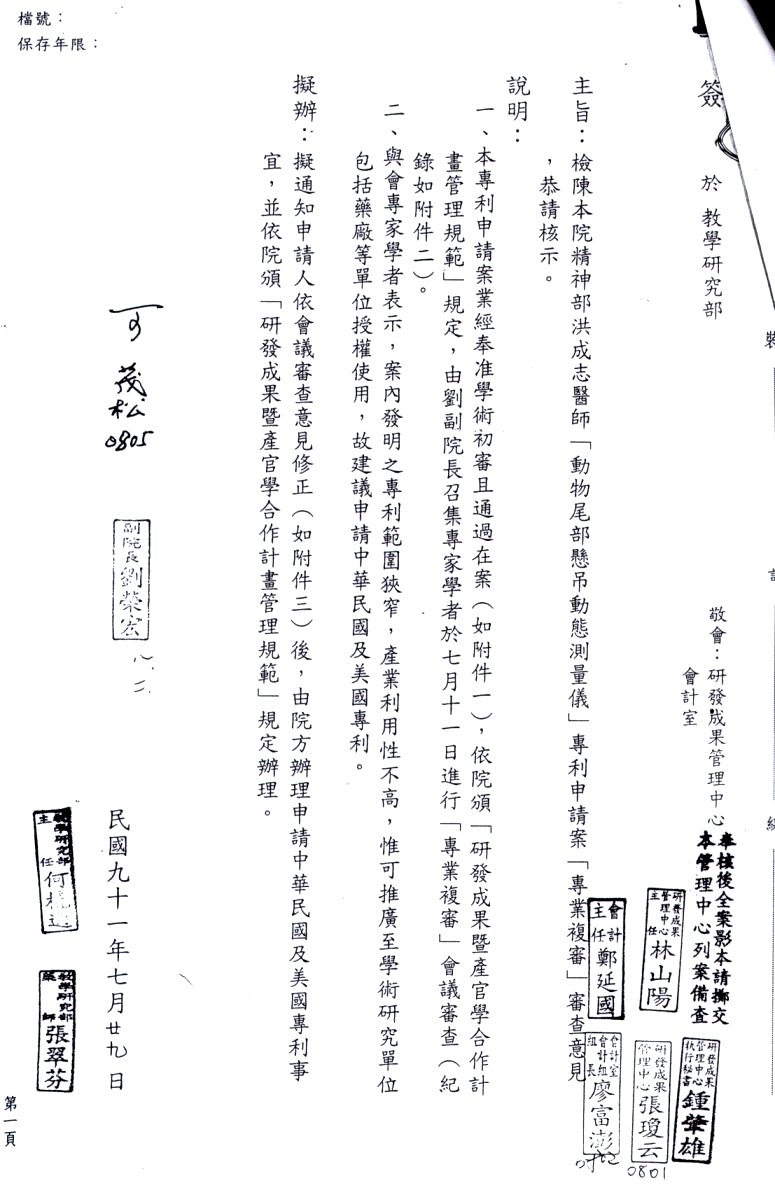 檔號：
保存年限：
簽 於 教學研究部
敬會：研發成果管理中心
會計室
奉核後全案影本請擲交
本管理中心列案備查
主旨：檢陳本院精神部洪成志醫師「動物尾部懸吊動態測量儀」專利申請案「專業複審」審查意見
，恭請核示。
說明：
一、本專利申請案業經奉准學術初審且通過在案（如附件一），依院頒「研發成果暨產官學合作計
畫管理規範」規定，由劉副院長召集專家學者於七月十一日進行「專業複審」會議審查（紀
錄如附件二）。
二、與會專家學者表示，案內發明之專利範圍狹窄，產業利用性不高，惟可推廣至學術研究單位
包括藥廠等單位授權使用，故建議申請中華民國及美國專利。
擬辦：擬通知申請人依會議審查意見修正（如附件三）後，由院方辦理申請中華民國及美國專利事
宜，並依院頒「研發成果暨產官學合作計畫管理規範」規定辦理。
研發成果
管理中心
主任
林山陽
會計
主任
鄭延國
研發成果
管理中心
執行秘書
鍾肇雄
研發成果
管理中心
張瓊云
0801
會計室
會計組
組長
廖富澎
可
茂松
0805
副院長
劉榮宏
八、二
民國九十一年七月廿九日
教學研究部
主任
何
教學研究部
藥師
張翠芬
第一頁
裝
訂
線